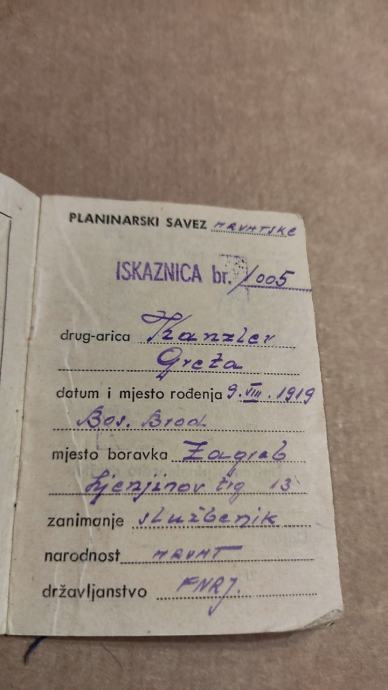 PLANINARSKI SAVEZ HRVATSKE
ISKAZNICA br. 1005
drug-arica Kanzler
Greta
datum i mjesto rođenja 9. VIII. 1919
Bos. Brod
mjesto boravka Zagreb
Ljenjinov trg 13
zanimanje službenik
narodnost HRVAT
državljanstvo FNRJ.